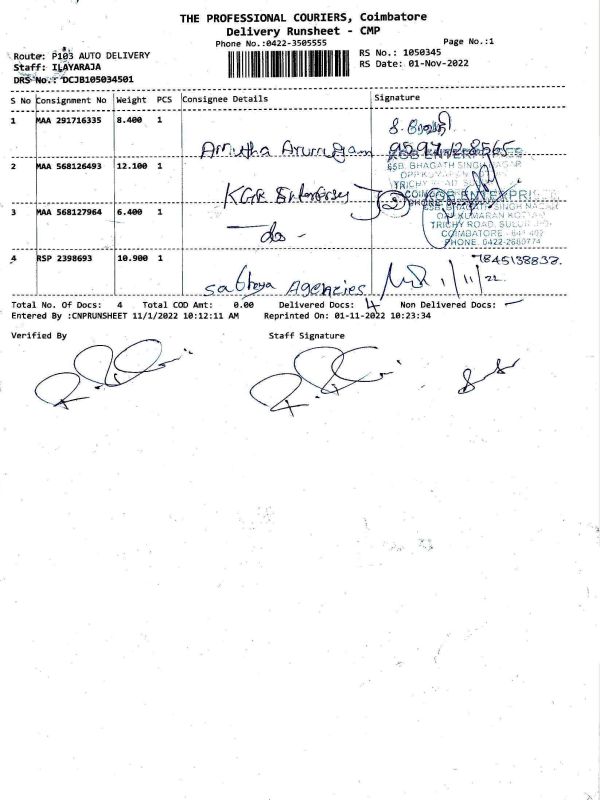 THE PROFESSIONAL COURIERS, Coimbatore
Delivery Runsheet - CMP
Phone No.:0422-3505555 Page No.:1
Route: P103 AUTO DELIVERY RS No.: 1050345
Staff: ILAYARAJA RS Date: 01-Nov-2022
DRS No.: DCJB105034501
S No Consignment No Weight PCS Consignee Details Signature
1 MAA 291716335 8.400 1
Amutha Arumugam 9597128565
2 MAA 568126493 12.100 1
65B, BHAGATH SINGH NAGAR
KGR Enterprises
3 MAA 568127964 6.400 1
65B, BHAGATH SINGH NAGAR
TRICHY ROAD, SULUR
— do -
COIMBATORE - 641 402
PHONE: 0422-2680774
4 RSP 2398693 10.900 1 7845138832.
Agencies 1/11/22
Total No. Of Docs: 4 Total COD Amt: 0.00 Delivered Docs: 4 Non Delivered Docs: —
Entered By :CNPRUNSHEET 11/1/2022 10:12:11 AM Reprinted On: 01-11-2022 10:23:34
Verified By Staff Signature